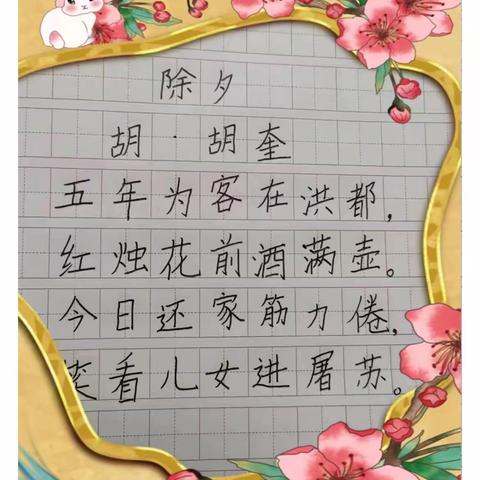 除夕
胡·胡奎
五年为客在洪都,
红烛花前酒满壶。
今日还家筋力倦,
笑看儿女进屠苏。